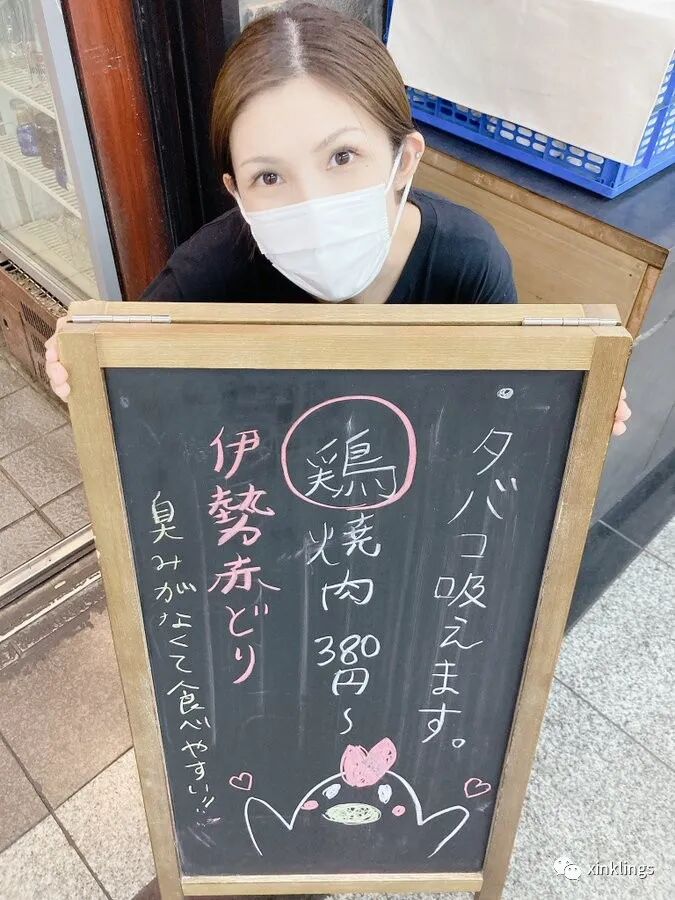 タバコ吸えます。
鶏焼肉 380円～
伊勢赤どり
臭みがなくて食べやすい!!
xinklings